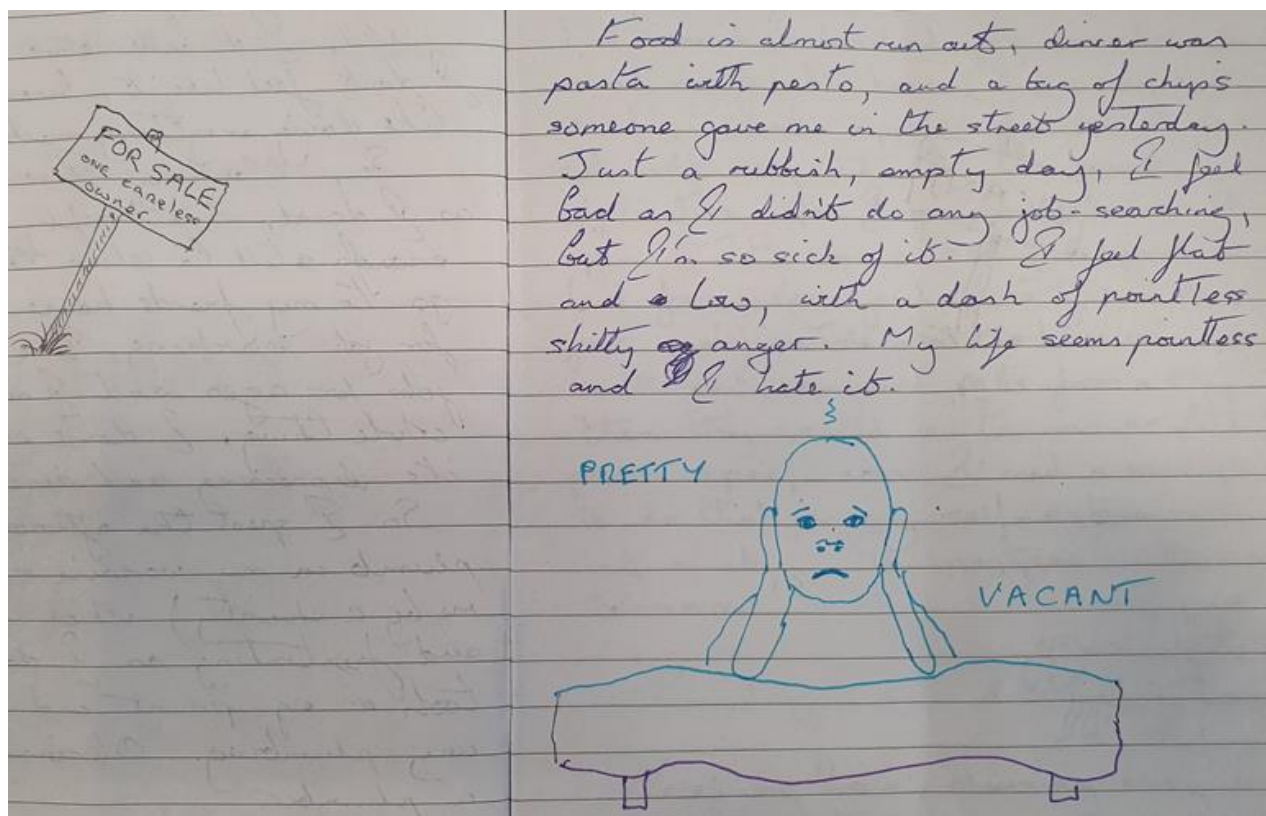 FOR SALE
ONE CARELESS
OWNER
Food is almost run out, dinner was
pasta with pesto, and a bag of chips
someone gave me in the street yesterday.
Just a rubbish, empty day, I feel
bad as I didn't do any job-searching,
but I'm so sick of it. I feel flat
and low, with a dash of pointless
shitty anger. My life seems pointless
and I hate it.
PRETTY
VACANT